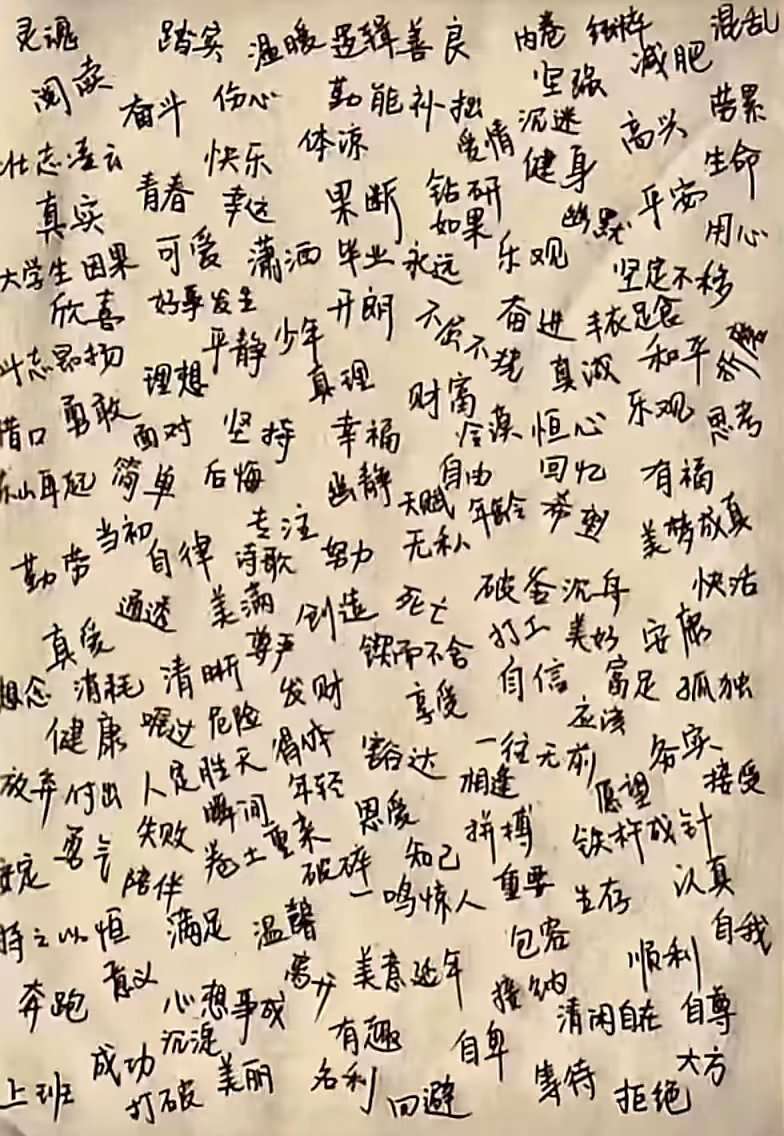 灵魂 踏实 温暖 逻辑 善良 内卷 纯粹 混乱
阅读 奋斗 伤心 勤能补拙 坚强 减肥
壮志凌云 快乐 体凉 爱情 沉迷 高兴 劳累
真实 青春 幸运 果断 钻研 健身 生命
如果 幽默 平安 用心
大学生 因果 可爱 潇洒 毕业 永远 乐观 坚定不移
欣喜 好事发生 开朗 不屈不挠 奋进 丰衣足食
斗志昂扬 平静 少年
理想 真理 财富 真诚 和平
借口 勇敢 面对 坚持 幸福 冷漠 恒心 乐观 思考
东山再起 简单 后悔 幽静 自由 回忆 有福
勤劳 当初 专注 天赋 年龄 美梦成真
自律 诗歌 努力 无私
通透 美满 创造 死亡 破釜沉舟 快活
真爱 尊严 锲而不舍 打工 美好 安康
想念 消耗 清晰 发财 享受 自信 富足 孤独
健康 危险 得体 豁达 一往无前 应该 务实
放弃 付出 人定胜天 年轻 相逢 愿望 接受
安定 勇气 失败 瞬间 卷土重来 恩爱 拼搏 铁杵成针
陪伴 破碎 知己 一鸣惊人 重要 生存 认真
持之以恒 满足 温馨 包容 自我
奔跑 意义 心想事成 离别 美意延年 接纳 顺利
沉淀 有趣 清闲自在 自尊
上班 成功 打破 美丽 名利 回避 自卑 等待 拒绝 大方